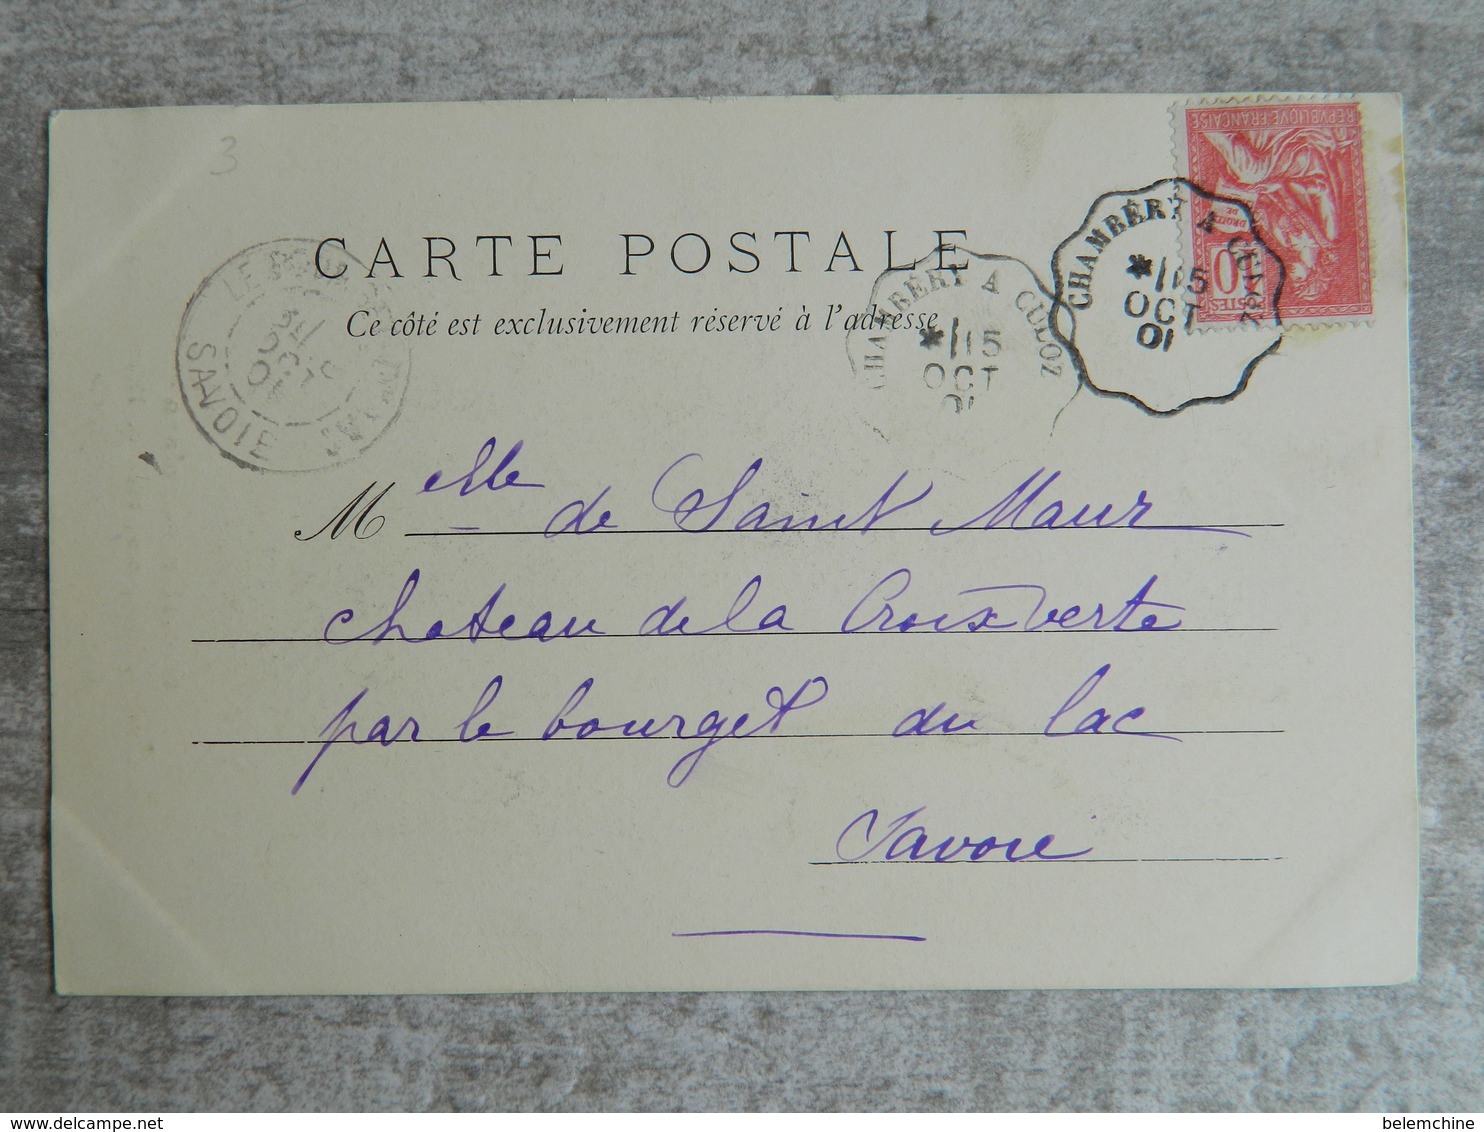 3
CARTE POSTALE
Ce côté est exclusivement réservé à l'adresse
REPVBLIQVE FRANÇAISE
DROITS DE
10
POSTES
CHAMBÉRY A CULOZ
*/15
OCT
01
CHAMBÉRY A CULOZ
*/15
OCT
01
SAVOIE
Melle de Saint Maur
chateau de la Croix verte
par le bourget du lac
Savoie
belemchine